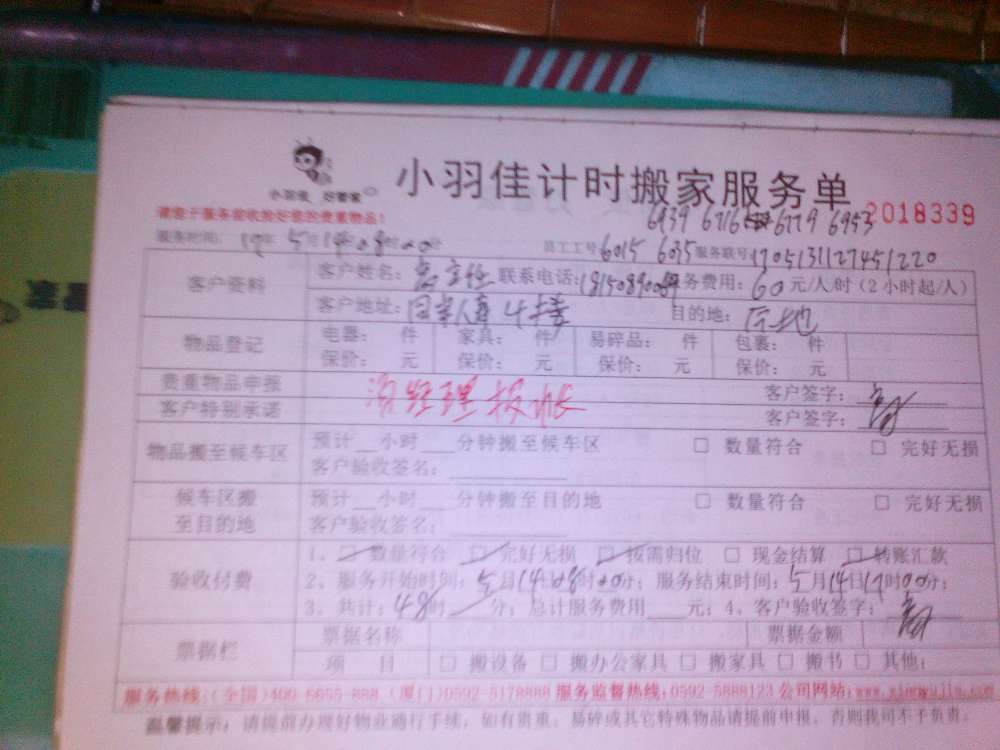 小羽佳 好管家
小羽佳计时搬家服务单
6939 6716 6779 6953 2018339
请您于服务前收拾好您的贵重物品!
服务时间: 17年5月14日08时00分 员工工号6015 6035 服务联号1705131127451220
客户资料 客户姓名: 高主任 联系电话: 服务费用: 60元/人/时(2小时起/人)
客户地址: 4楼 目的地: 同地
物品登记 电器: 件 家具: 件 易碎品: 件 包裹: 件
保价: 元 保价: 元 保价: 元 保价: 元
贵重物品申报 客户签字:
客户特别承诺 经理报账 客户签字:
物品搬至候车区 预计__小时___分钟搬至候车区 □ 数量符合 □ 完好无损
客户验收签名:
候车区搬至目的地 预计__小时___分钟搬至目的地 □ 数量符合 □ 完好无损
客户验收签名:
验收付费 1、□ 数量符合 □ 完好无损 □ 按需归位 □ 现金结算 □ 转账汇款
2、服务开始时间: 5月14日08时00分; 服务结束时间: 5月14日17时00分;
3、共计: 48时___分; 总计服务费用____元; 4、客户验收签字:
票据栏 票据名称 票据金额
项 目 □ 搬设备 □ 搬办公家具 □ 搬家具 □ 搬书 □ 其他:
服务热线:(全国)400-6655-888 (厦门)0592-5178888 服务监督热线:0592-5888123 公司网站:www.xiaoyujia.com
温馨提示: 请提前办理好物业通行手续, 如有贵重、易碎或其它特殊物品请提前申报, 否则我司不予负责。